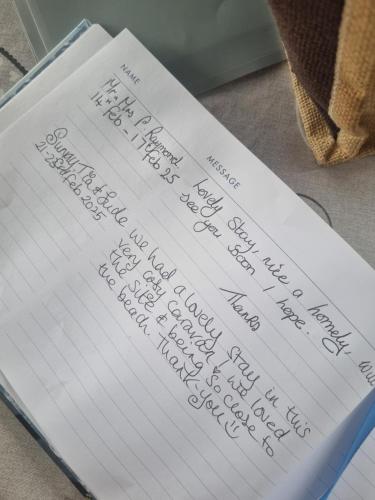 NAME
MESSAGE
Mr & Mrs P Raymond
14 Feb - 17 Feb 25
Lovely stay, nice & homely, will
see you soon I hope.
Thanks
Sunny, Tia &
21-23rd Feb 2025
We had a lovely stay in this
very cosy caravan & we loved
the site & being so close to
the beach. Thank you